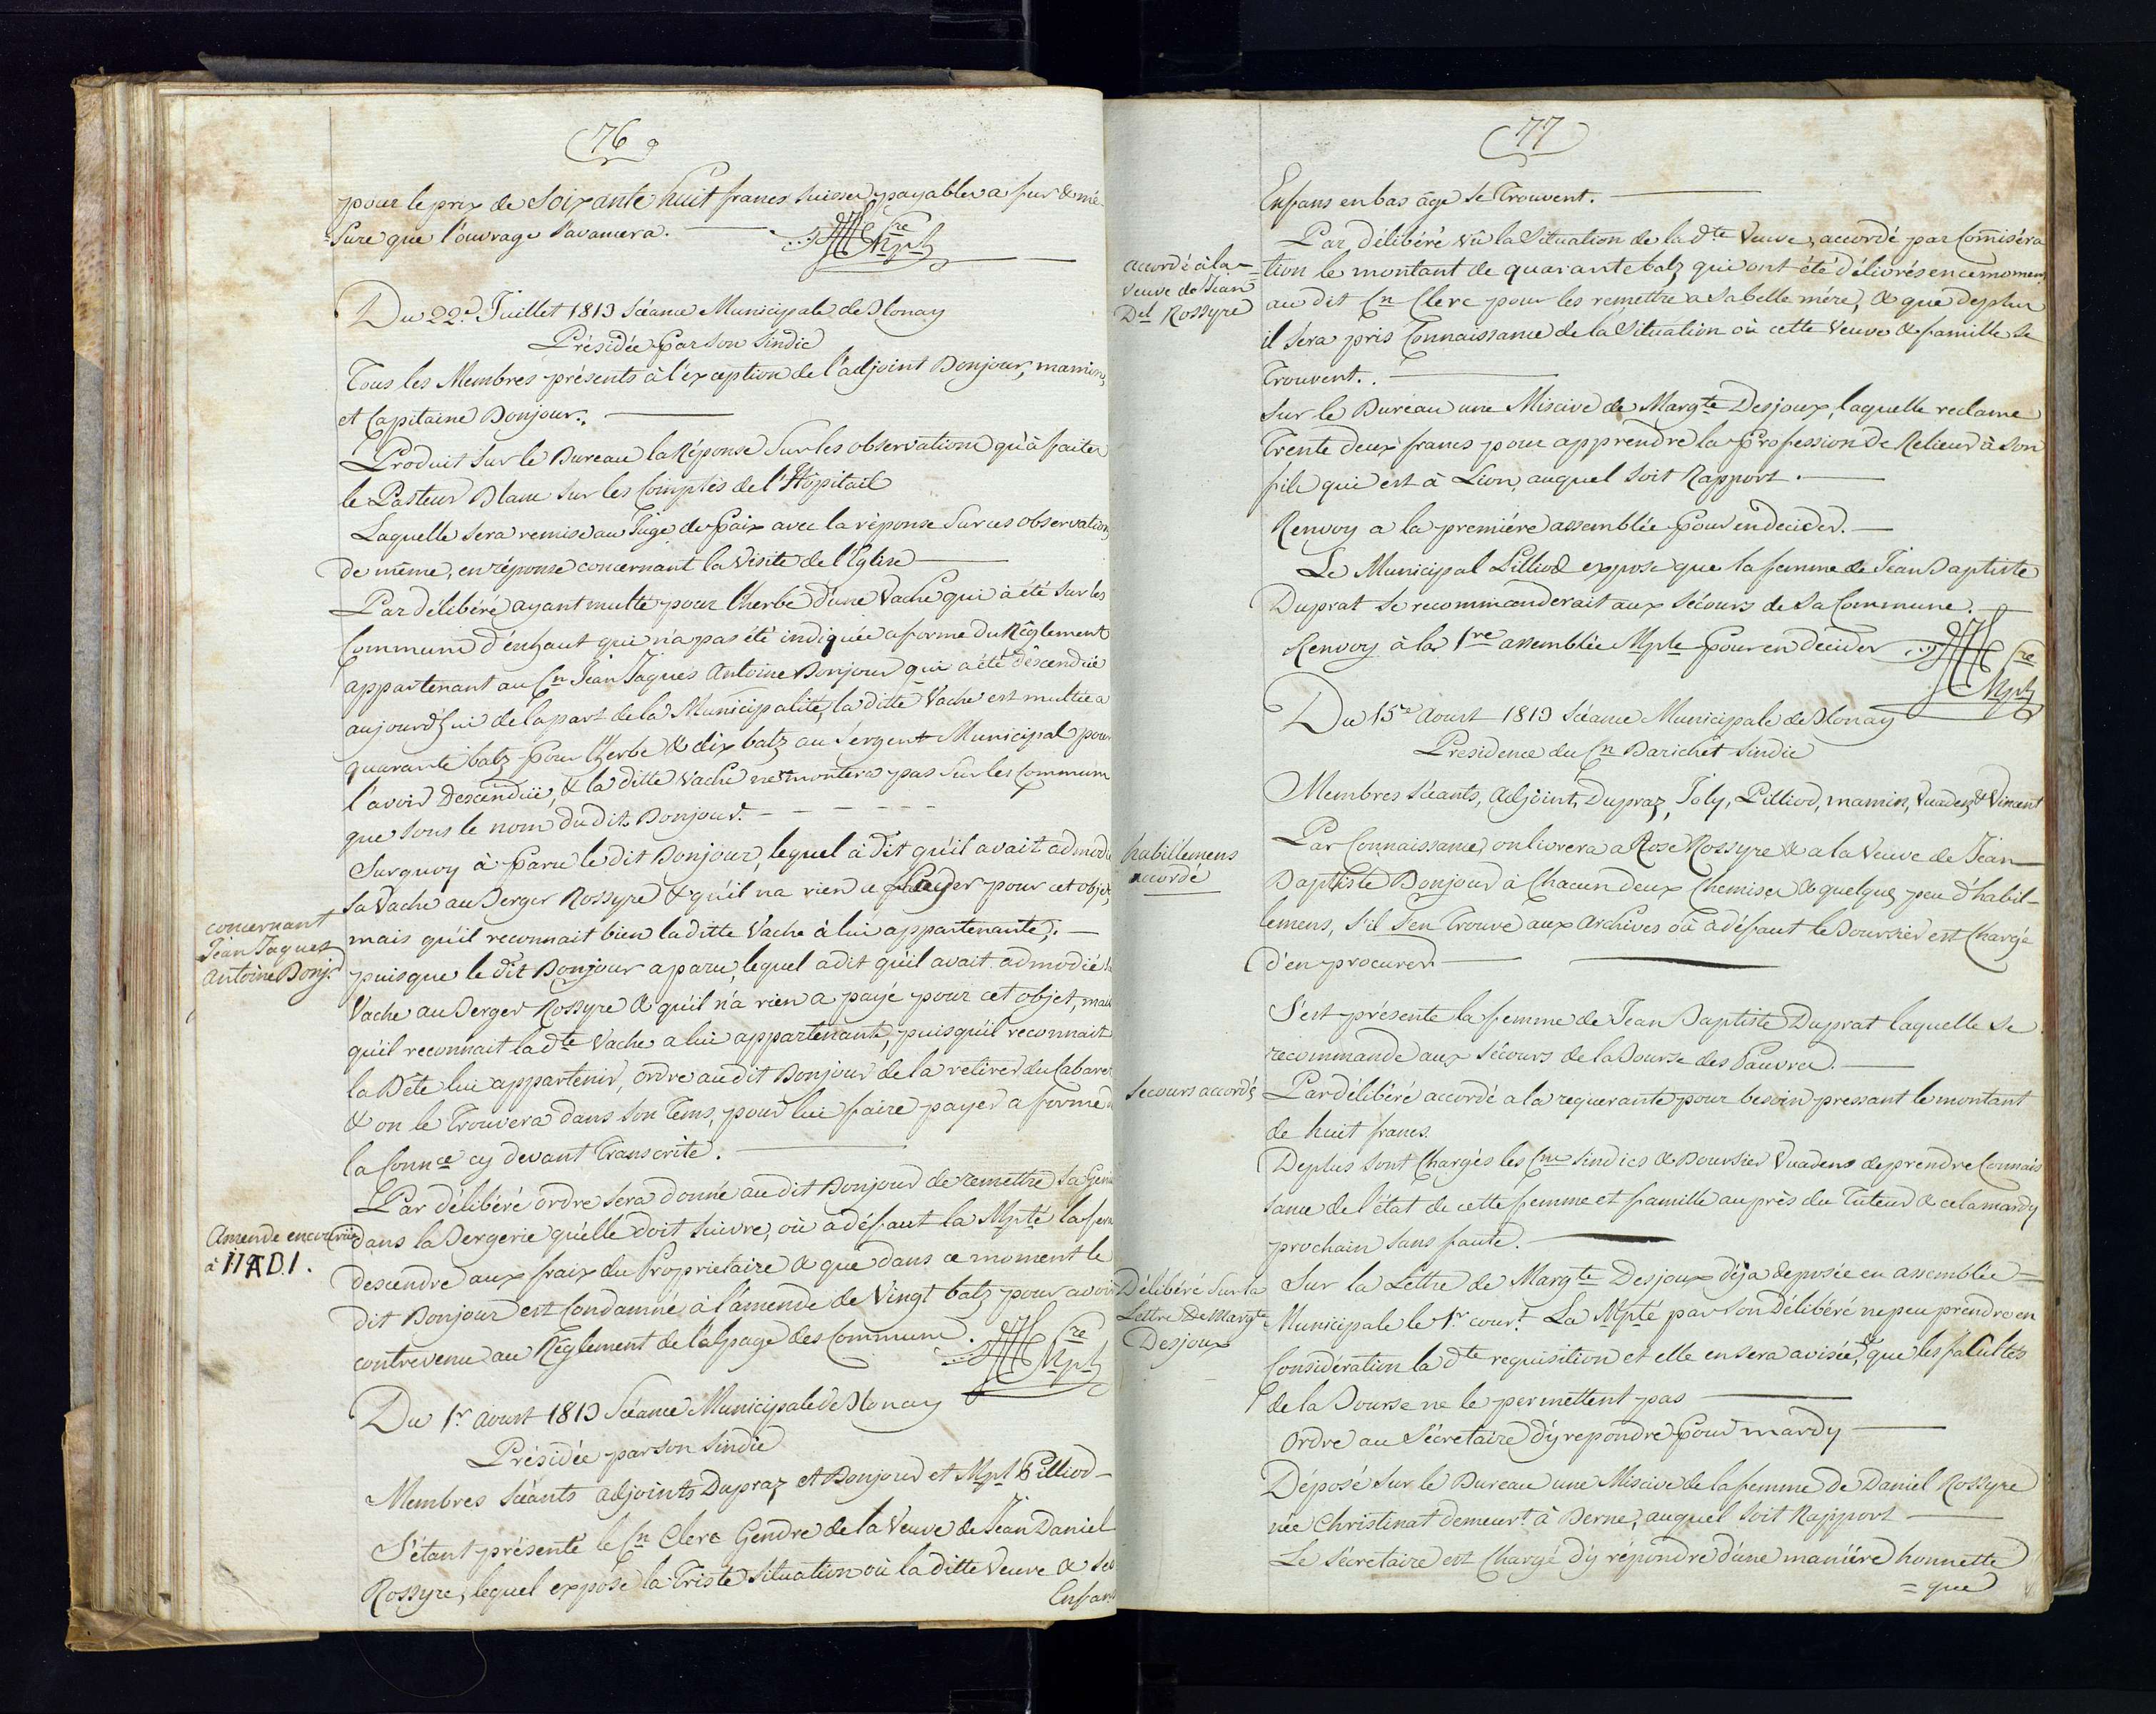 76
pour le prix de Soixante huit francs suisses payables a fur & mé-
-sure que l'ouvrage s'avancera.
Cre
Mpl
Du 22e. Juillet 1813 Séance Municipale de Blonay
Présidée par son Sindic
Tous les Membres présents à l'exception de l'adjoint Bonjour, mamin,
et Capitaine Bonjour.
Produit sur le Bureau la Réponse sur les observations qu'à faites
le Pasteur Blanc sur les Comptes de l'Hôpitail
Laquelle sera remise au Juge de Paix avec la réponse sur ces observations
de même, en réponse concernant la Visite de l'Eglise
Par délibéré ayant multé pour l'herbe d'une Vache qui à été sur les
Communs d'enhaut qui n'a pas été indiquée a forme du Règlement
appartenant au Cn Jean Jaques Antoine Bonjour qui a été descendüe
aujourd'hui de la part de la Municipalité, la ditte Vache est multée a
quarante batz pour l'herbe & dix batz au Sergent Municipal pour
l'avoir Descendüe, & la ditte Vache ne remontera pas sur les Communs
que sous le nom du dit Bonjour.
Surquoy à Paru le dit Bonjour, lequel à dit qu'il avait admodié
sa Vache au Berger Rossyre & qu'il na rien a payer pour cet objet,
concernant
Jean Jaques
Antoine Bonjr
mais qu'il reconnait bien la ditte Vache à lui appartenante,
puisque le dit Bonjour a paru, lequel a dit qu'il avait admodié la
Vache au Berger Rossyre & qu'il n'a rien a payé pour cet objet, mais
qu'il reconnait la dte Vache a lui appartenante, puisqu'il reconnait
la Bête lui appartenir, ordre au dit Bonjour de la retirer du Cabaret
& on le Trouvera dans son Tems, pour lui faire payer a forme de
la Connce cy devant Transcrite.
Par délibéré ordre sera donné au dit Bonjour de remettre sa Génisse
Amende encourue
à J J A D. J.
dans la Bergerie qu'elle doit suivre, où à défaut la Mpté la fera
descendre aux fraix du Proprietaire & que dans ce moment le
dit Bonjour est Condamné à l'amende de Vingt batz pour avoir
contrevenu au Règlement de l'alpage des Communs.
Cre
Mpl
Du 1r Aoust 1813 Séance Municipale de Blonay
Présidée par son Sindic
Membres Séants adjoints Dupraz et Bonjour et Mpl Pilliod
S'étant présenté le Cn Clerc Gendre de la Veuve de Jean Daniel
Rossyre, lequel expose la Triste situation où la ditte Veuve & ses
Enfans
77
Enfans en bas âge se Trouvent.
Par délibéré vû la Situation de la dte Veuve, accordé par Commiséra
accordé à la
Veuve de Jean
Del Rossyre
tion le montant de quarante batz qui ont été délivrés en ce moment
au dit Cn Clerc pour les remettre a sa belle mére, & que deplus
il sera pris Connaissance de la Situation où cette Veuve & famille se
Trouvent.
Sur le Bureau une Miscive de Margte Desjoux, laquelle reclame
Trente deux francs pour apprendre la Profession de Relieur à son
fils qui est à Lion, auquel soit Rapport.
Renvoy a la premiére assemblée Pour en decider.
Le Municipal Pilliod expose que la femme de Jean Baptiste
Duprat se recommanderait aux sécours de sa Commune.
Renvoy à la 1re assemblée Mple Pour en decider
Cre
Mpl
Du 15e Aoust 1813 Séance Municipale de Blonay
Présidence du Cn Barichet Sindic
Membres Séants, Adjoint, Dupraz, Joly, Pilliod, mamin, Vuadens & Vincent
Par Connaissance, on livrera a Rose Rossyre & a la Veuve de Jean
habillemens
accordé
Baptiste Bonjour à Chacun deux Chemises & quelques peu d'habil-
lemens, s'il s'en Trouve aux Archives où à défaut le Boursier est Chargé
d'en procurer.
S'est présenté la femme de Jean Baptiste Duprat laquelle se
recommande aux sécours de la Bourse des Pauvres.
Secours accordés
Par délibéré accordé a la requerante pour besoin pressant le montant
de huit francs.
Deplus sont Chargés les Cns Sindics & Boursier Vuadens de prendre Connais
sance de l'état de cette femme et famille auprès du Tuteur & cela mardy
prochain sans faute.
Délibéré Sur la
Lettre De Margte
Desjoux
Sur la Lettre de Margte Desjoux déja déposée en assemblée
Municipale le 1r court. La Mpté par son Délibéré ne peu prendre en
Considération la dte requisition et elle en sera avisée, que les facultés
de la Bourse ne le permettent pas
Ordre au Sécretaire d'y repondre Pour mardy
Déposé sur le Bureau une Miscive de la femme De Daniel Rossyre
née Christinat demeurt. à Berne, auquel soit Rapport
Le Sécretaire est Chargé d'y répondre d'une maniére honnette
= que